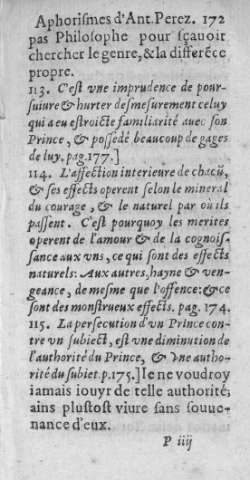 Aphorismes d'Ant. Perez. 172
pas Philosophe pour sçauoir
chercher le genre, & la differẽce
propre.
113. C'est vne imprudence de pour-
suiure & hurter desmesurement celuy
qui a eu estroicte familiarité auec son
Prince, & possedé beaucoup de gages
de luy. pag. 177.]
114. L'affection interieure de chacũ,
& ses effects operent selon le mineral
du courage, & le naturel par où ils
passent. C'est pourquoy les merites
operent de l'amour & de la cognois-
sance aux vns, ce qui sont des effects
naturels: Aux autres, hayne & ven-
geance, de mesme que l'offence: & ce
sont des monstrueux effects. pag. 174.
115. La persecution d'vn Prince con-
tre vn subiect, est vne diminution de
l'authorité du Prince, & vne autho-
rité du subiet p. 175.] Ie ne voudroy
iamais iouyr de telle authorité,
ains plustost viure sans souue-
nance d'eux.
P iiij